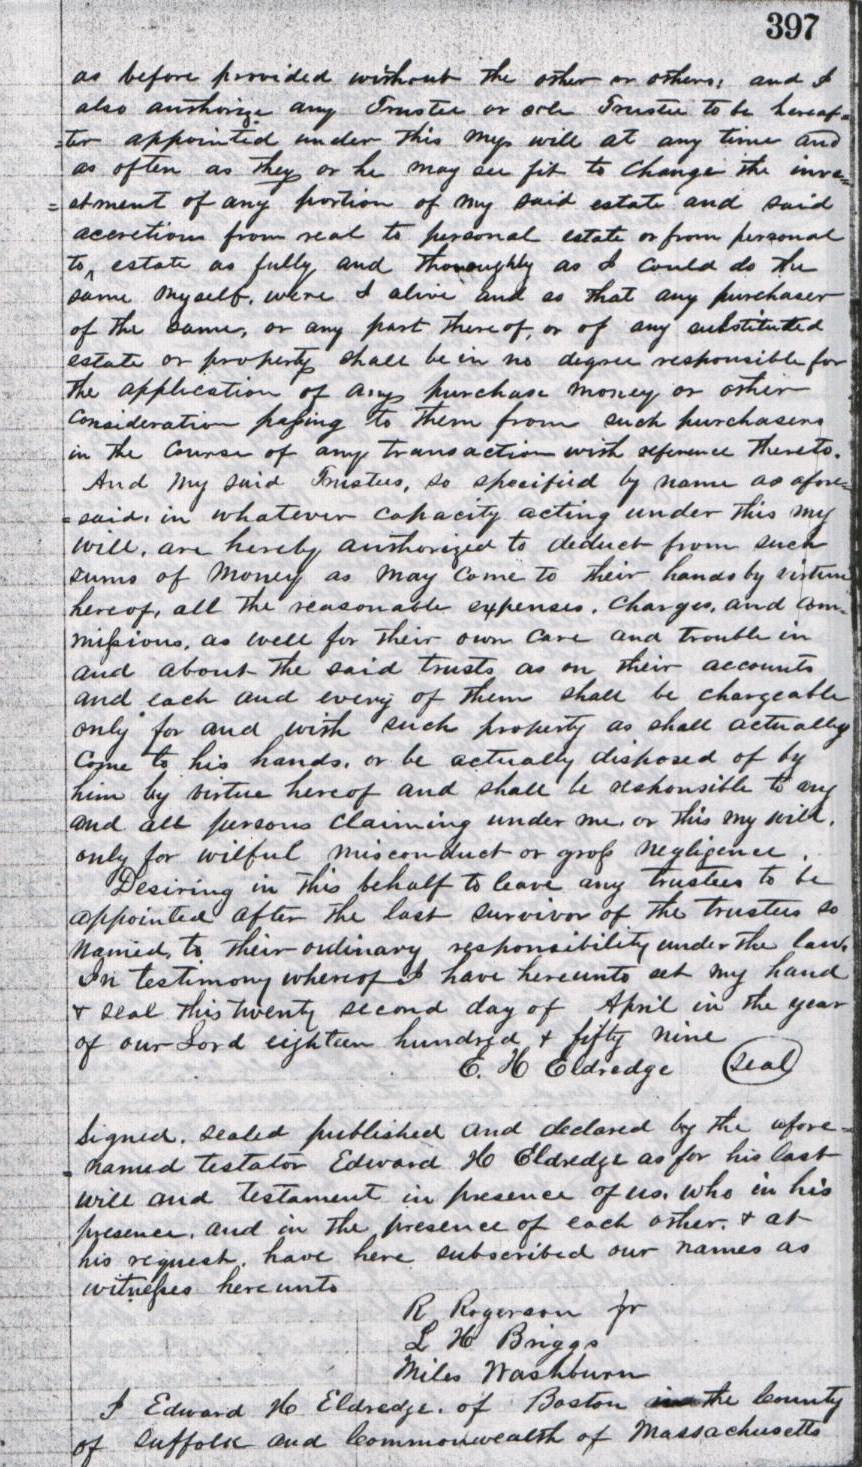 397
as before provided without the other or others; and I
also authorize any Trustee or sole Trustee to be hereaf-
=ter appointed under this my will at any time and
as often as they or he may see fit to change the inve=
=stment of any portion of my said estate and said
accretions from real to personal estate or from personal
to ‸ estate as fully and thoroughly as I could do the
same myself, were I alive and so that any purchaser
of the same, or any part thereof, or of any substituted
estate or property shall be in no degree responsible for
the application of any purchase money or other
consideration paſsing to them from such purchasers
in the course of any transaction with reference thereto.
And my said Trustees, so specified by name as afore=
=said, in whatever capacity acting under this my
will, are hereby authorized to deduct from such
sums of money as may come to their hands by virtue
hereof, all the reasonable expenses, charges, and com-
miſsions, as well for their own care and trouble in
and about the said trusts as on their accounts
and each and every of them shall be chargeable
only for and with such property as shall actually
come to his hands, or be actually disposed of by
him by virtue hereof and shall be responsible to any
and all persons claiming under me, or this my will,
only for wilful misconduct or groſs negligence.
Desiring in this behalf to leave any trustees to be
appointed after the last survivor of the trustees so
named, to their ordinary responsibility under the law.
In testimony whereof I have hereunto set my hand
& seal this twenty second day of April in the year
of our Lord eighteen hundred & fifty nine
E. H Eldredge (seal)
Signed, sealed published and declared by the afore=
-named testator Edward H Eldredge as for his last
will and testament in presence of us, who in his
presence, and in the presence of each other, & at
his request, have here subscribed our names as
witneſses hereunto
R Rogerson Jr
L H Briggs
Miles Washburn
I Edward H Eldredge, of Boston the County
of Suffolk and Commonwealth of Massachusetts